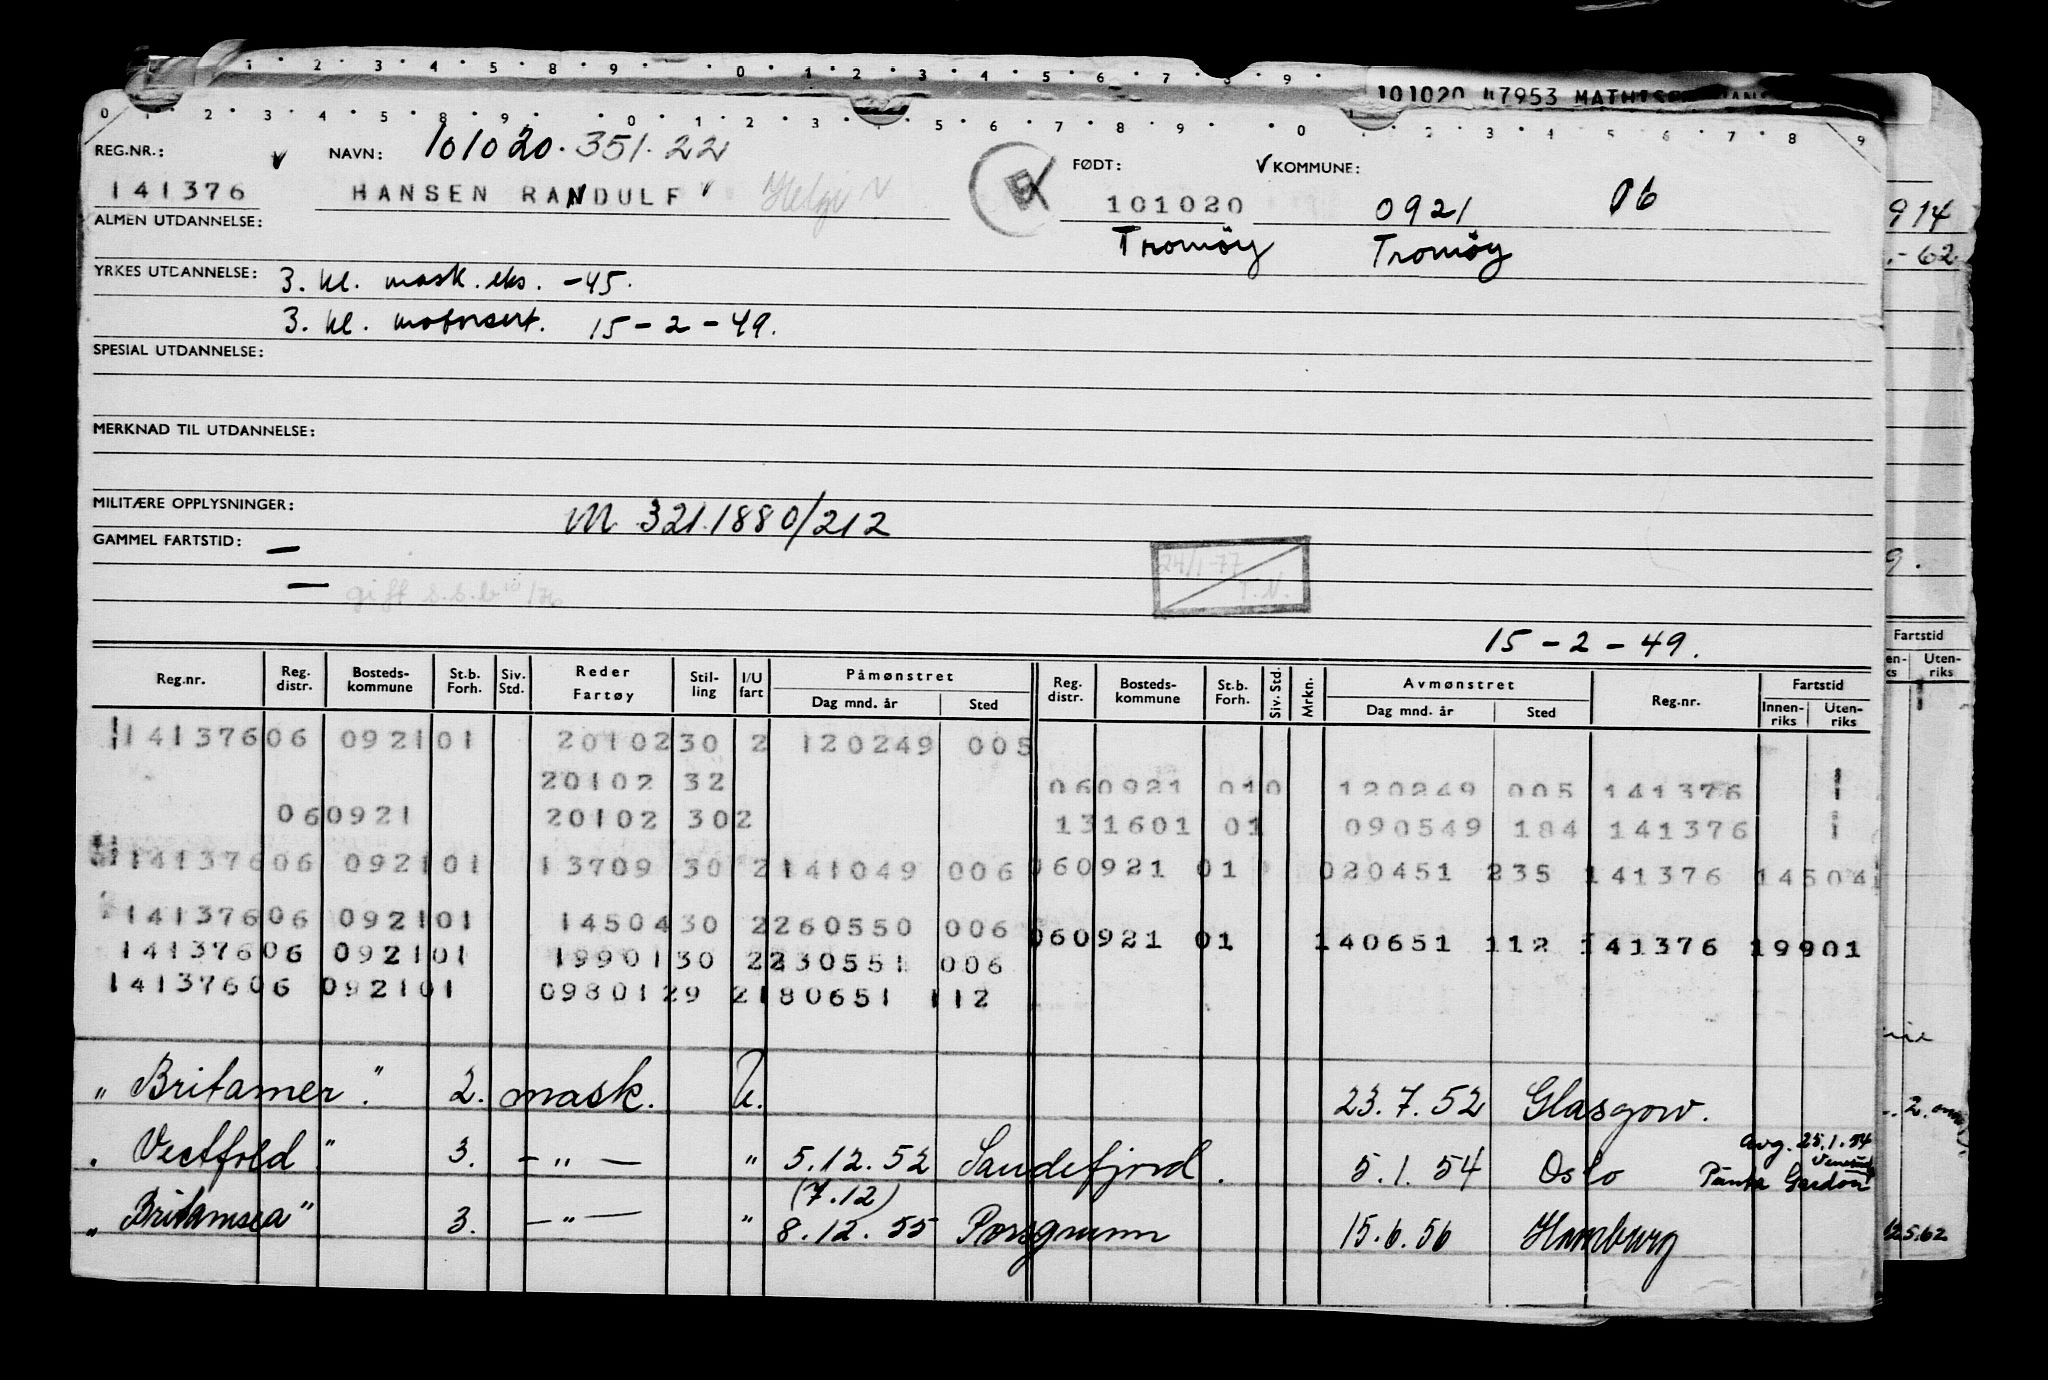 1 2 3 4 5 8 9 0 1 2 3 4 5 6 7 8 9
101020 47953
0 1 2 3 4 5 8 9 0 1 2 3 4 5 6 7 8 9 0 1 2 3 4 5 6 7 8 9
REG.NR.: NAVN: 101020.351.22 FØDT: KOMMUNE:
141376 HANSEN RANDULF Helge 101020 0921 06
ALMEN UTDANNELSE: Tromöy Tromöy
YRKES UTDANNELSE: 3. kl. mask.eks. -45.
3. kl. motorsert. 15-2-49.
SPESIAL UTDANNELSE:
MERKNAD TIL UTDANNELSE:
MILITÆRE OPPLYSNINGER: M.321.1880/212
GAMMEL FARTSTID: —
— gift s.s.b 24/1-77
15-2-49.
Reg.nr. Reg. distr. Bosteds-kommune St.b. Forh. Siv. Std. Reder Fartøy Stil-ling I/U fart Påmønstret Dag mnd. år Sted Reg. distr. Bosteds-kommune St.b. Forh. Siv. Std. Mrkn. Avmønstret Dag mnd. år Sted Reg.nr. Fartstid Innen-riks Uten-riks
141376 06 0921 01 20102 30 2 120249 005
20102 32 060921 010 120249 005 141376
060921 20102 302 131601 01 090549 184 141376
141376 06 0921 01 13709 30 2 141049 006 060921 01 020451 235 141376 14504
141376 06 0921 01 14504 30 2 260550 006
060921 01 140651 112 141376 19901
141376 06 0921 01 19901 30 2 230551 006
141376 06 0921 01 09801 29 2 180651 112
"Britamer". 2. mask. U. 23.7.52 Glasgow.
"Vestfold" 3. -"- " 5.12.52 Sandefjord. 5.1.54 Oslo avg. 25.1.54
Punta
(7.12)
"Britamsea" 3. -"- " 8.12.55 Porsgrunn 15.6.56 Hamburg
914
.-62
9.
Fartstid
Uten-riks
2.
25.62